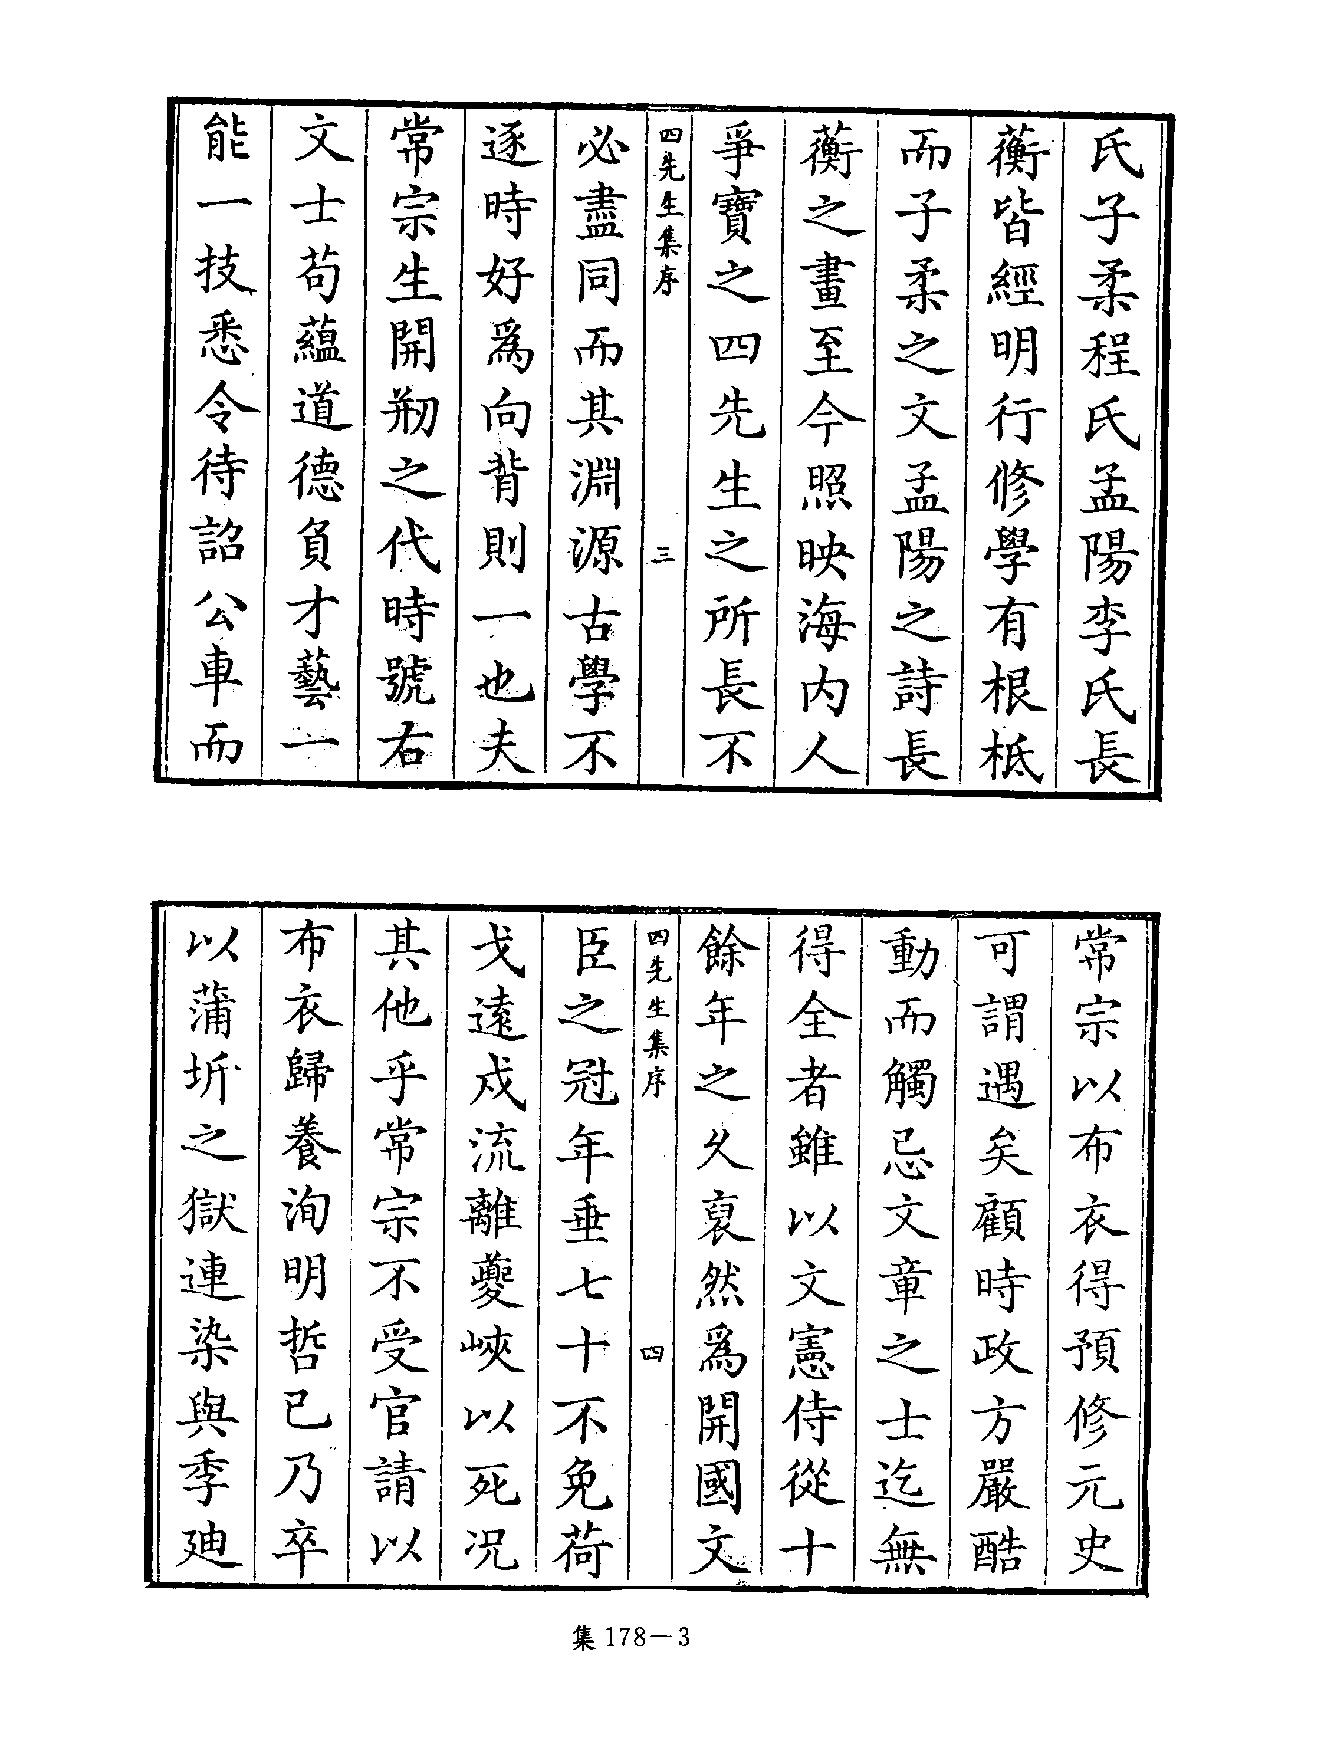 氏子柔程氏孟陽李氏長
蘅皆經明行修學有根柢
而子柔之文孟陽之詩長
蘅之畫至今照映海内人
爭寶之四先生之所長不
四先生集序
三
必盡同而其淵源古學不
逐時好爲向背則一也夫
常宗生開剏之代時號右
文士苟蘊道德負才藝一
能一技悉令待詔公車而
常宗以布衣得預修元史
可謂遇矣顧時政方嚴酷
動而觸忌文章之士迄無
得全者雖以文憲侍從十
餘年之久裒然爲開國文
四先生集序
四
臣之冠年垂七十不免荷
戈遠戍流離夔峽以死况
其他乎常宗不受官請以
布衣歸養洵明哲已乃卒
以蒲圻之獄連染與季廸
集178－3